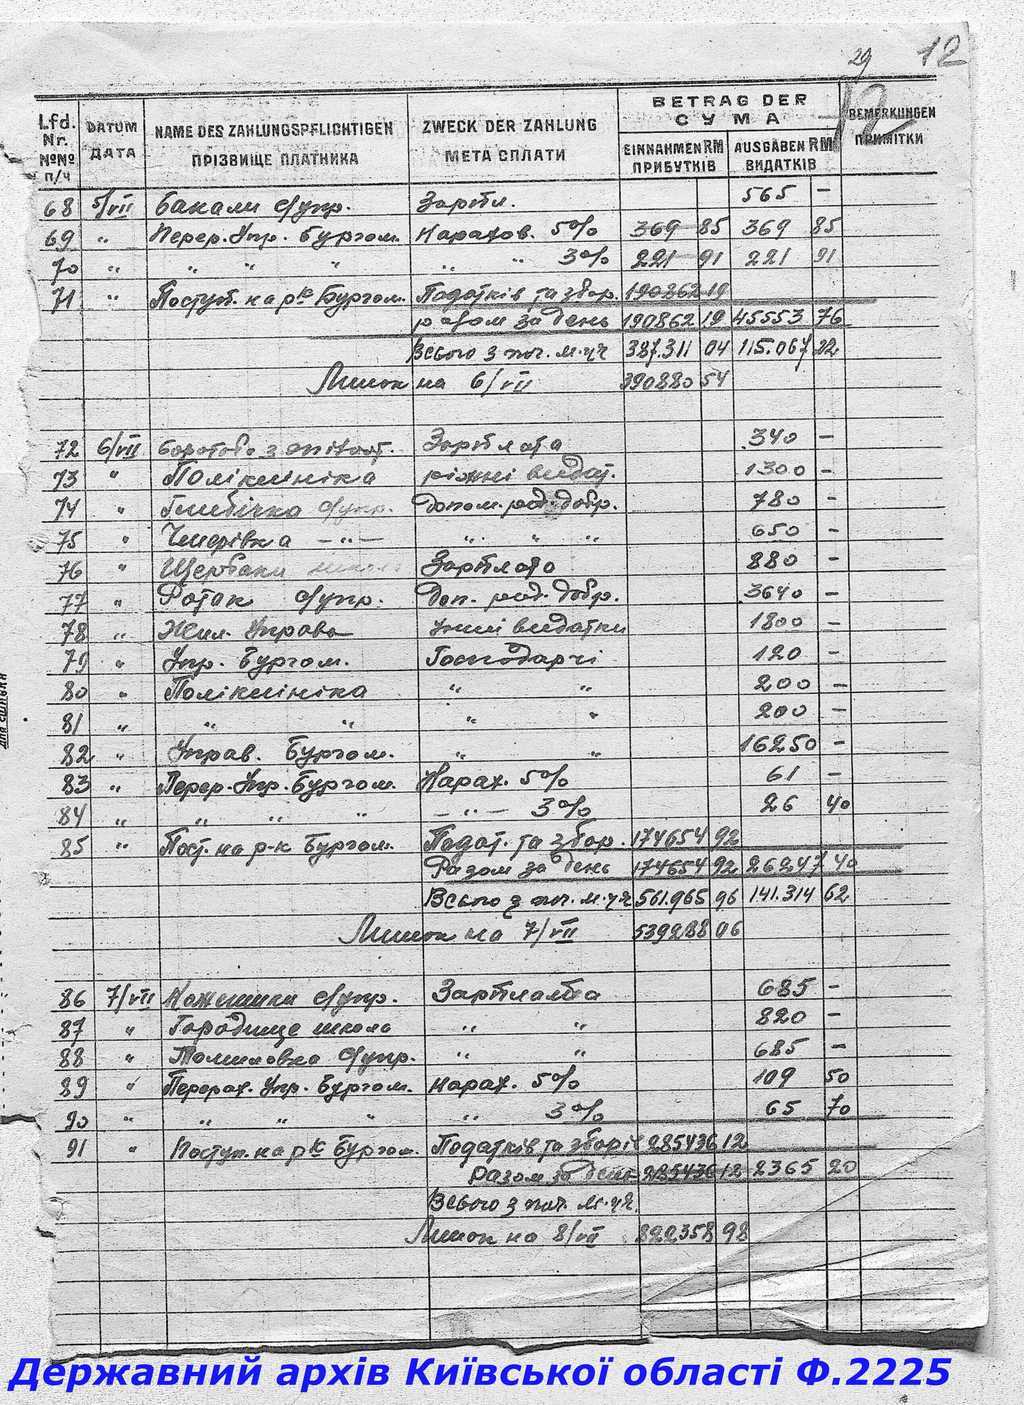 29 12
12
Lfd. Nr. №№ п/ч DATUM ДАТА NAME DES ZAHLUNGSPFLICHTIGEN ПРІЗВИЩЕ ПЛАТНИКА ZWECK DER ZAHLUNG МЕТА СПЛАТИ BETRAG DER СУМА EINNAHMEN RM ПРИБУТКІВ AUSGABEN RM ВИДАТКІВ BEMERKUNGEN ПРИМІТКИ
68 5/VII с/упр. Зарпл. 565 –
69 " Перер. Упр. Бургом. Нарахов. 5% 369 85 369 85
70 " " " " " " 3% 221 91 221 91
71 " Поступ. на р/к Бургом. Податків та збор. 190862 19
разом за день 190862 19 45553 76
Всього з поч. м-ця 387.311 04 115.067 22
Лишок на 6/VII 390880 54
72 6/VII Зарплата 340 –
73 " Поліклініка ріжні видат. 1300 –
74 " Глибічка с/упр. Допом. род. добр. 780 –
75 " Чмирівка –"– " " " 650 –
76 " Щербаки школа Зарплата 880 –
77 " Ротак с/упр. Доп. род. добр. 3640 –
78 " Жил. Управа видатки 1800 –
79 " Упр. Бургом. Господарчі 120 –
80 " Поліклініка " " 200 –
81 " " " " " 200 –
82 " Управ. Бургом. " " 16250 –
83 " Перер. Упр. Бургом. Нарах. 5% 61 –
84 " " " " –"– 3% 26 40
85 " Пост. на р-к Бургом. Подат. та збор. 174654 92
Разом за день 174654 92 26247 40
Всього з поч. м-ця 561.965 96 141.314 62
Лишок на 7/VII 539288 06
86 7/VII с/упр. Зарплатба 685 –
87 " Городище школа " " 820 –
88 " Томиловка с/упр. " " 685 –
89 " Перерах. Упр. Бургом. Нарах. 5% 109 50
90 " " " " " 3% 65 70
91 " Поступ. на р/к Бургом. Податків та зборів 285436 12
Разом за день 285436 12 2365 20
Всього з поч. м-ця
Лишок на 8/VII 822358 98
Державний архів Київської області Ф.2225